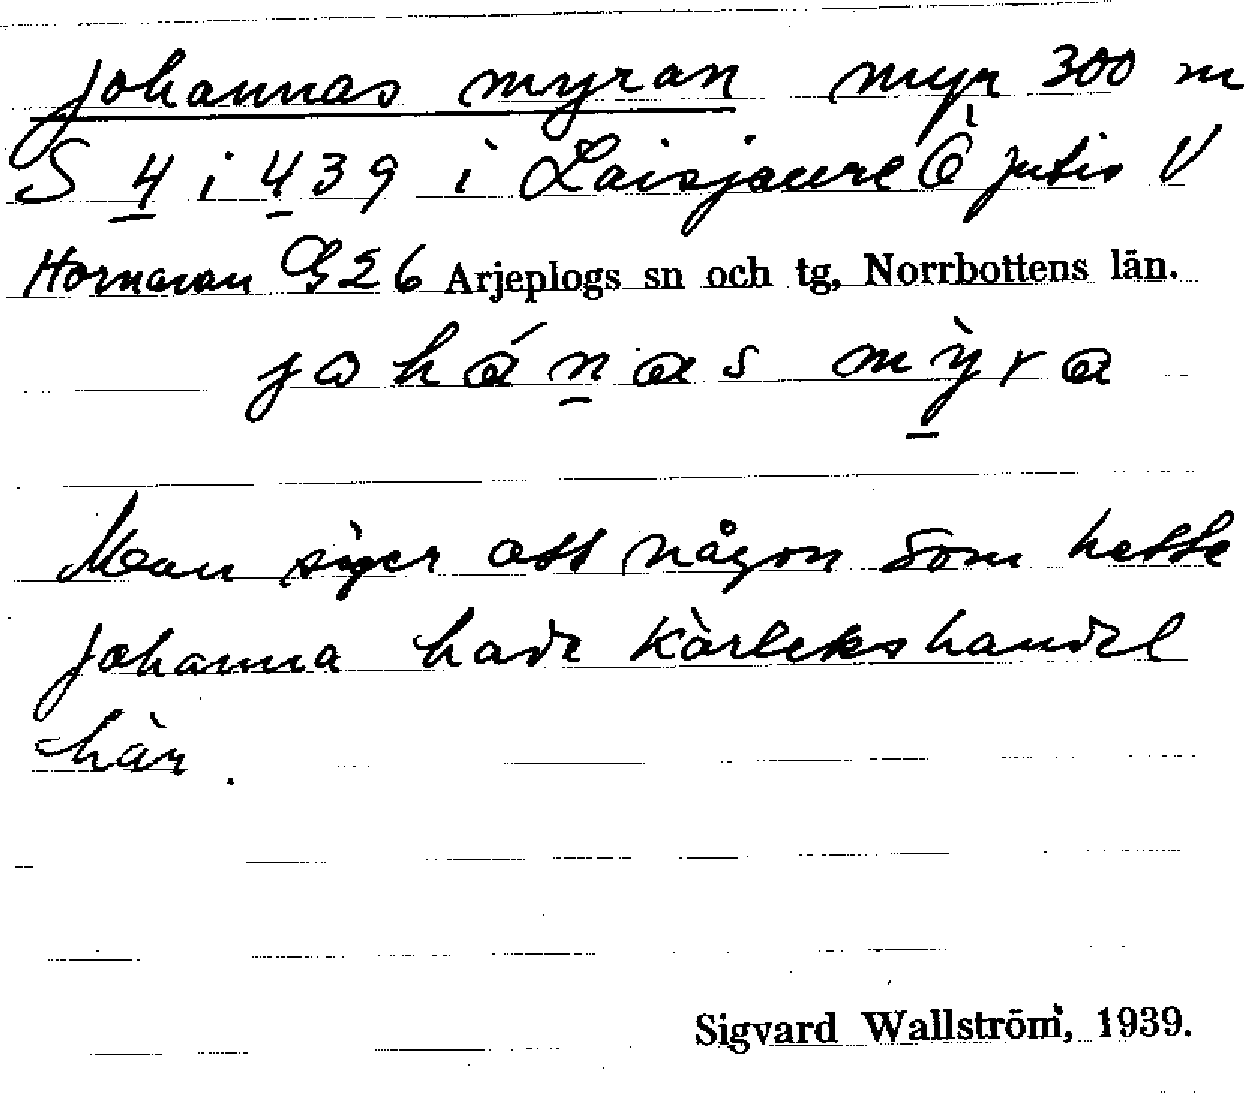 Johannas myran myr 300 m
S 4 i 439 i Laisjaure Ö Jutis V
Hornavan G26 Arjeplogs sn och tg, Norrbottens län.
johánas mỳra
Man säger att någon som hette
Johanna hade kärlekshandel
här.
Sigvard Wallström, 1939.